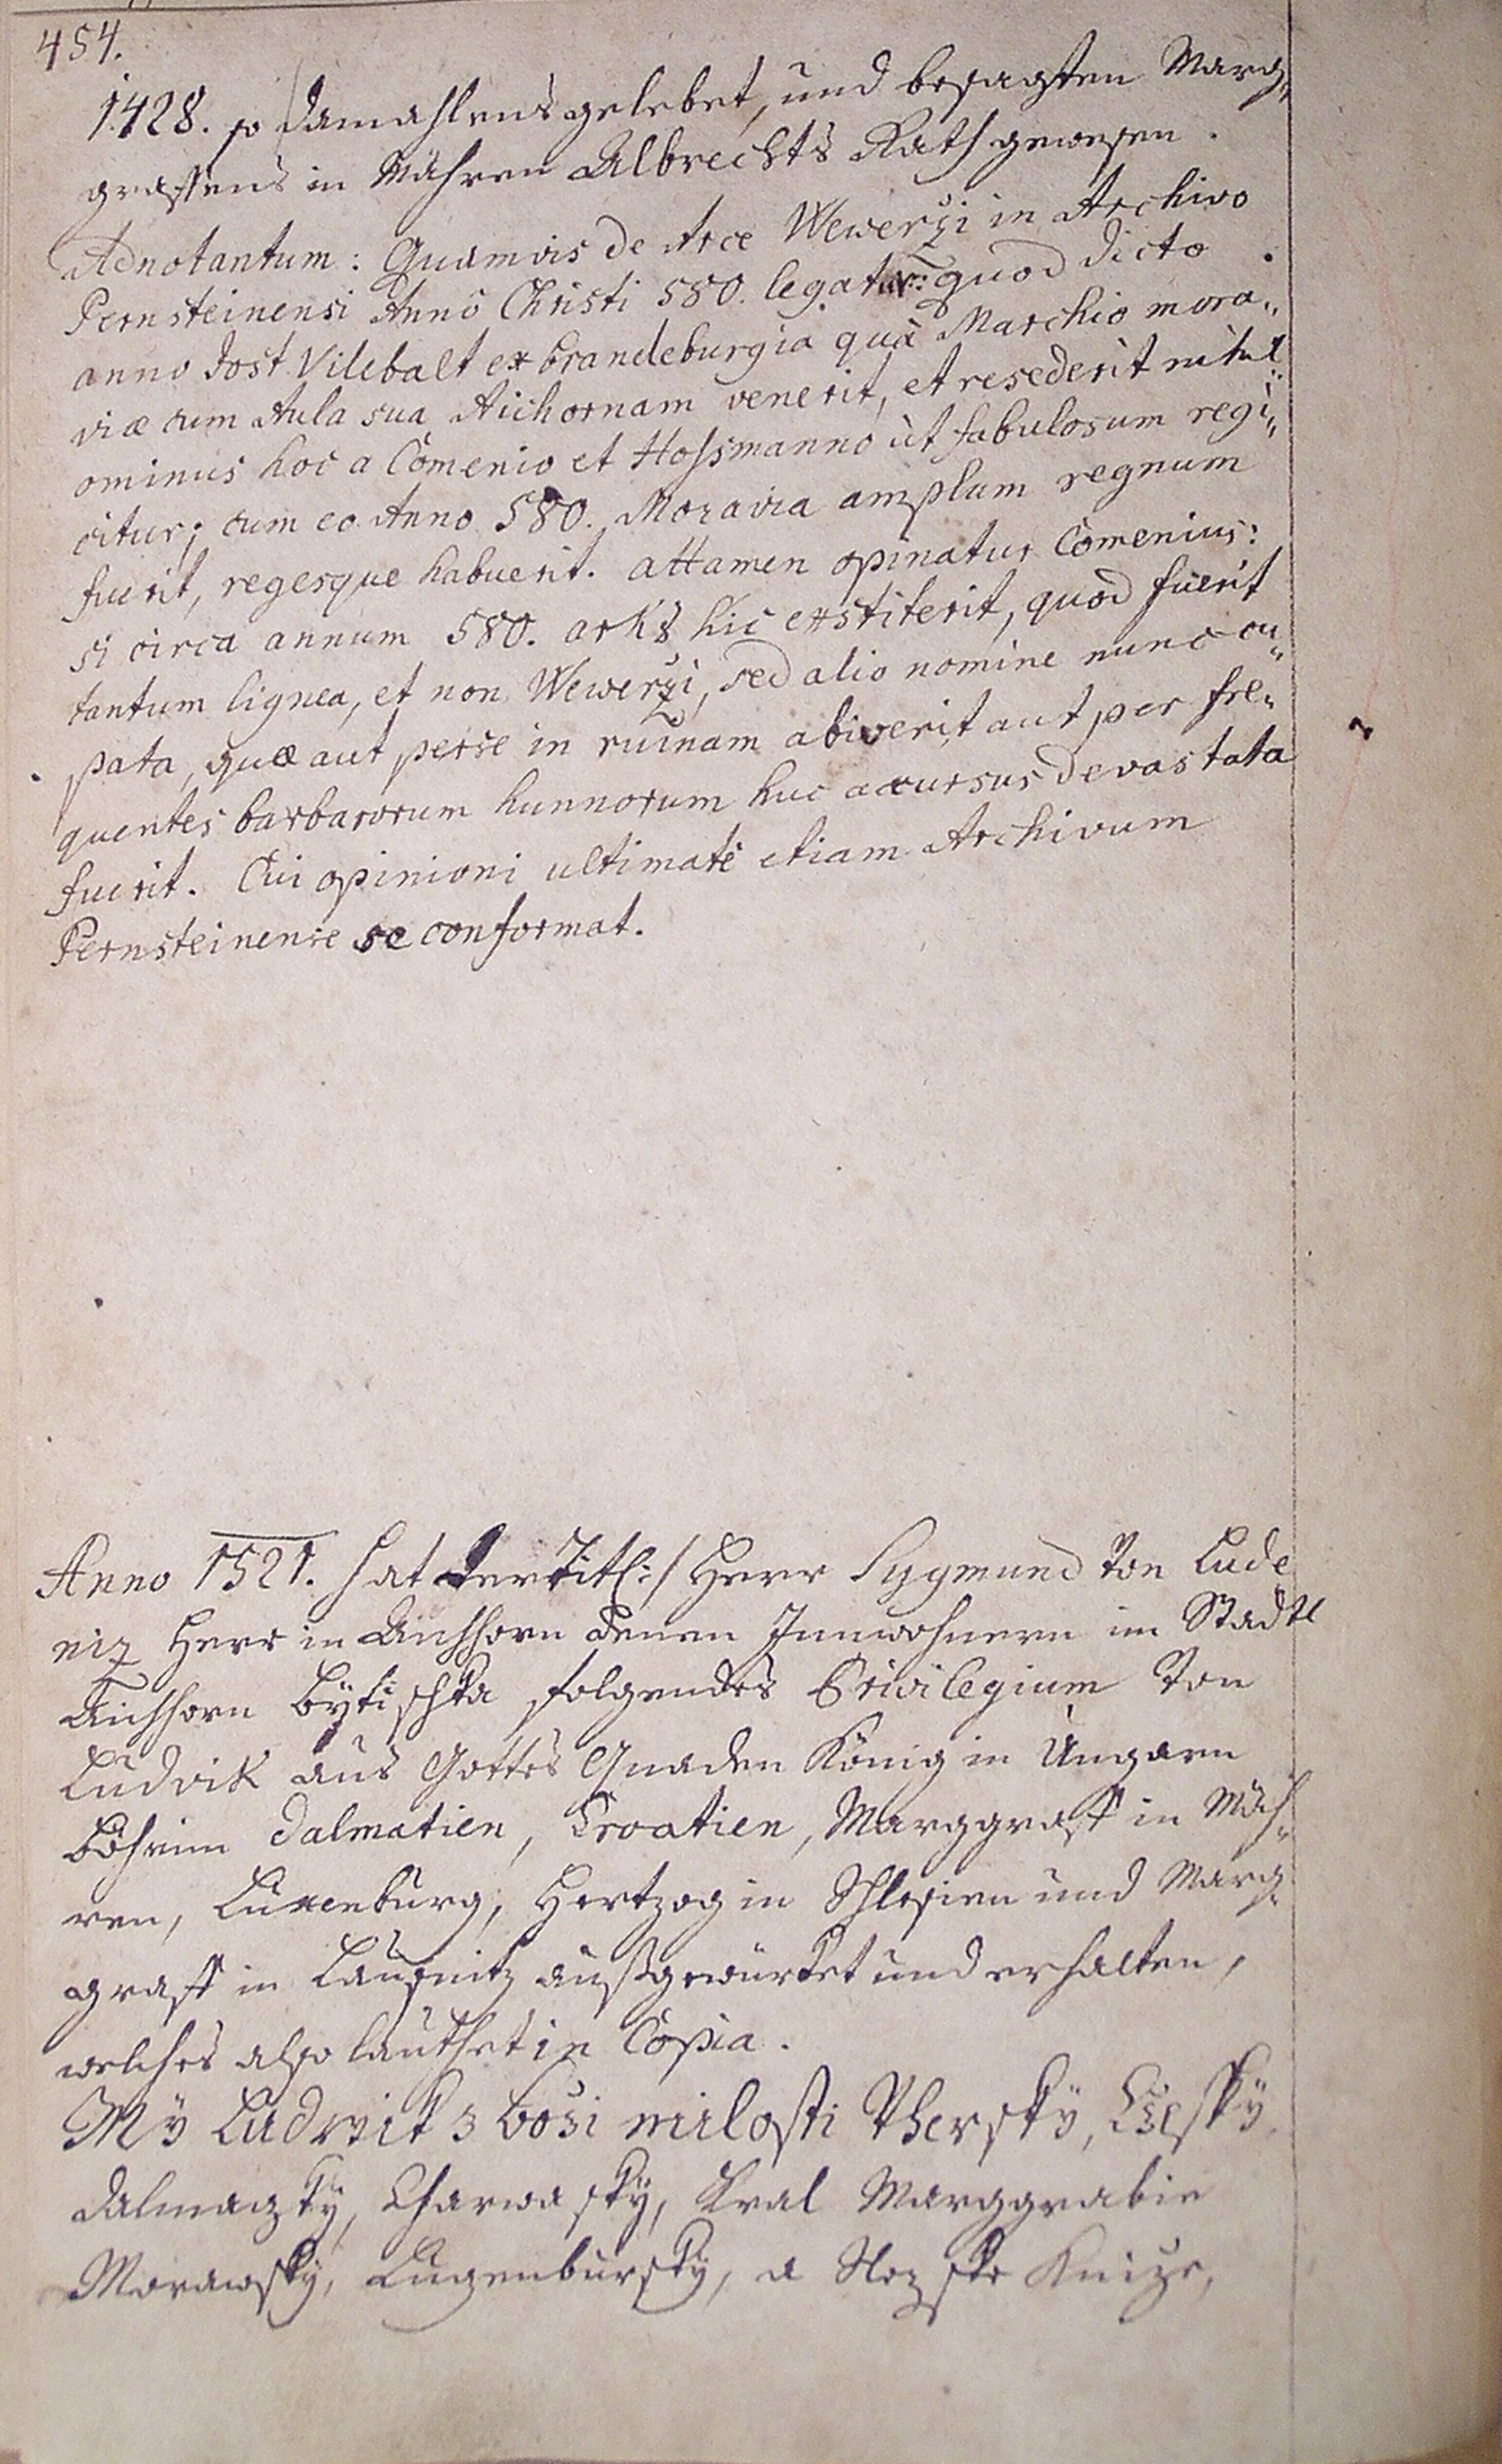 454.
1428. so damahlens gelebet, und besagten Marg„
graffens in Mähren Albrechts Rath gewesen.
Adnotantum: Quamvis de Arce Wewerzi in Archivo
Pernsteinensi Anno Christi 580. legatur: quod dicto
anno Jost Vilibalt ex brandeburgia quà Marchio mora„
viæ cum Aula sua Aichornam venerit, et resederit nihil
ominus hoc a Comenio et Hofsmanno ùt fabulosum regi„
citur; cum eo Anno 580. Moravia amplum regnum
fuerit, regesque habuerit. attamen opinatur Comenius:
si circa annum 580. arx hic exstiterit, quod fuerit
tantum lignea, et non Wewerzi, sed alio nomine nunc cu„
pata, quæ aut perse in ruinam abiverit aut per fre„
quentes barbarorum hunnorum huc accursus devastata
fuerit. Cui opinioni ultimatè etiam Archivum
Pernsteinense se conformat.
Anno 1521. hat der Titl:/ Herr Sygmund von Lude
niz Herr in Aichhorn denen Innwohnern im Stadtl
Aichhorn Bÿtischka folgendes Privilegium von
Ludvik aus Gottes Gnaden König in Ungarn
Böhmen Dalmatien, Croatien, Marggraff in Mäh„
ren, Luxenburg, Hertzog in Schlesien und Marg„
graff in Lausnitz außgewürket und erhalten,
welches also lauthet in Copia.
Mÿ Ludwik z Bozi milosti Vherskÿ, Cžeskÿ,
Dalmazkÿ, Charwaskÿ, Kral Marggrabie
Morawskÿ, Luzenburskÿ, a Slezske Knize,